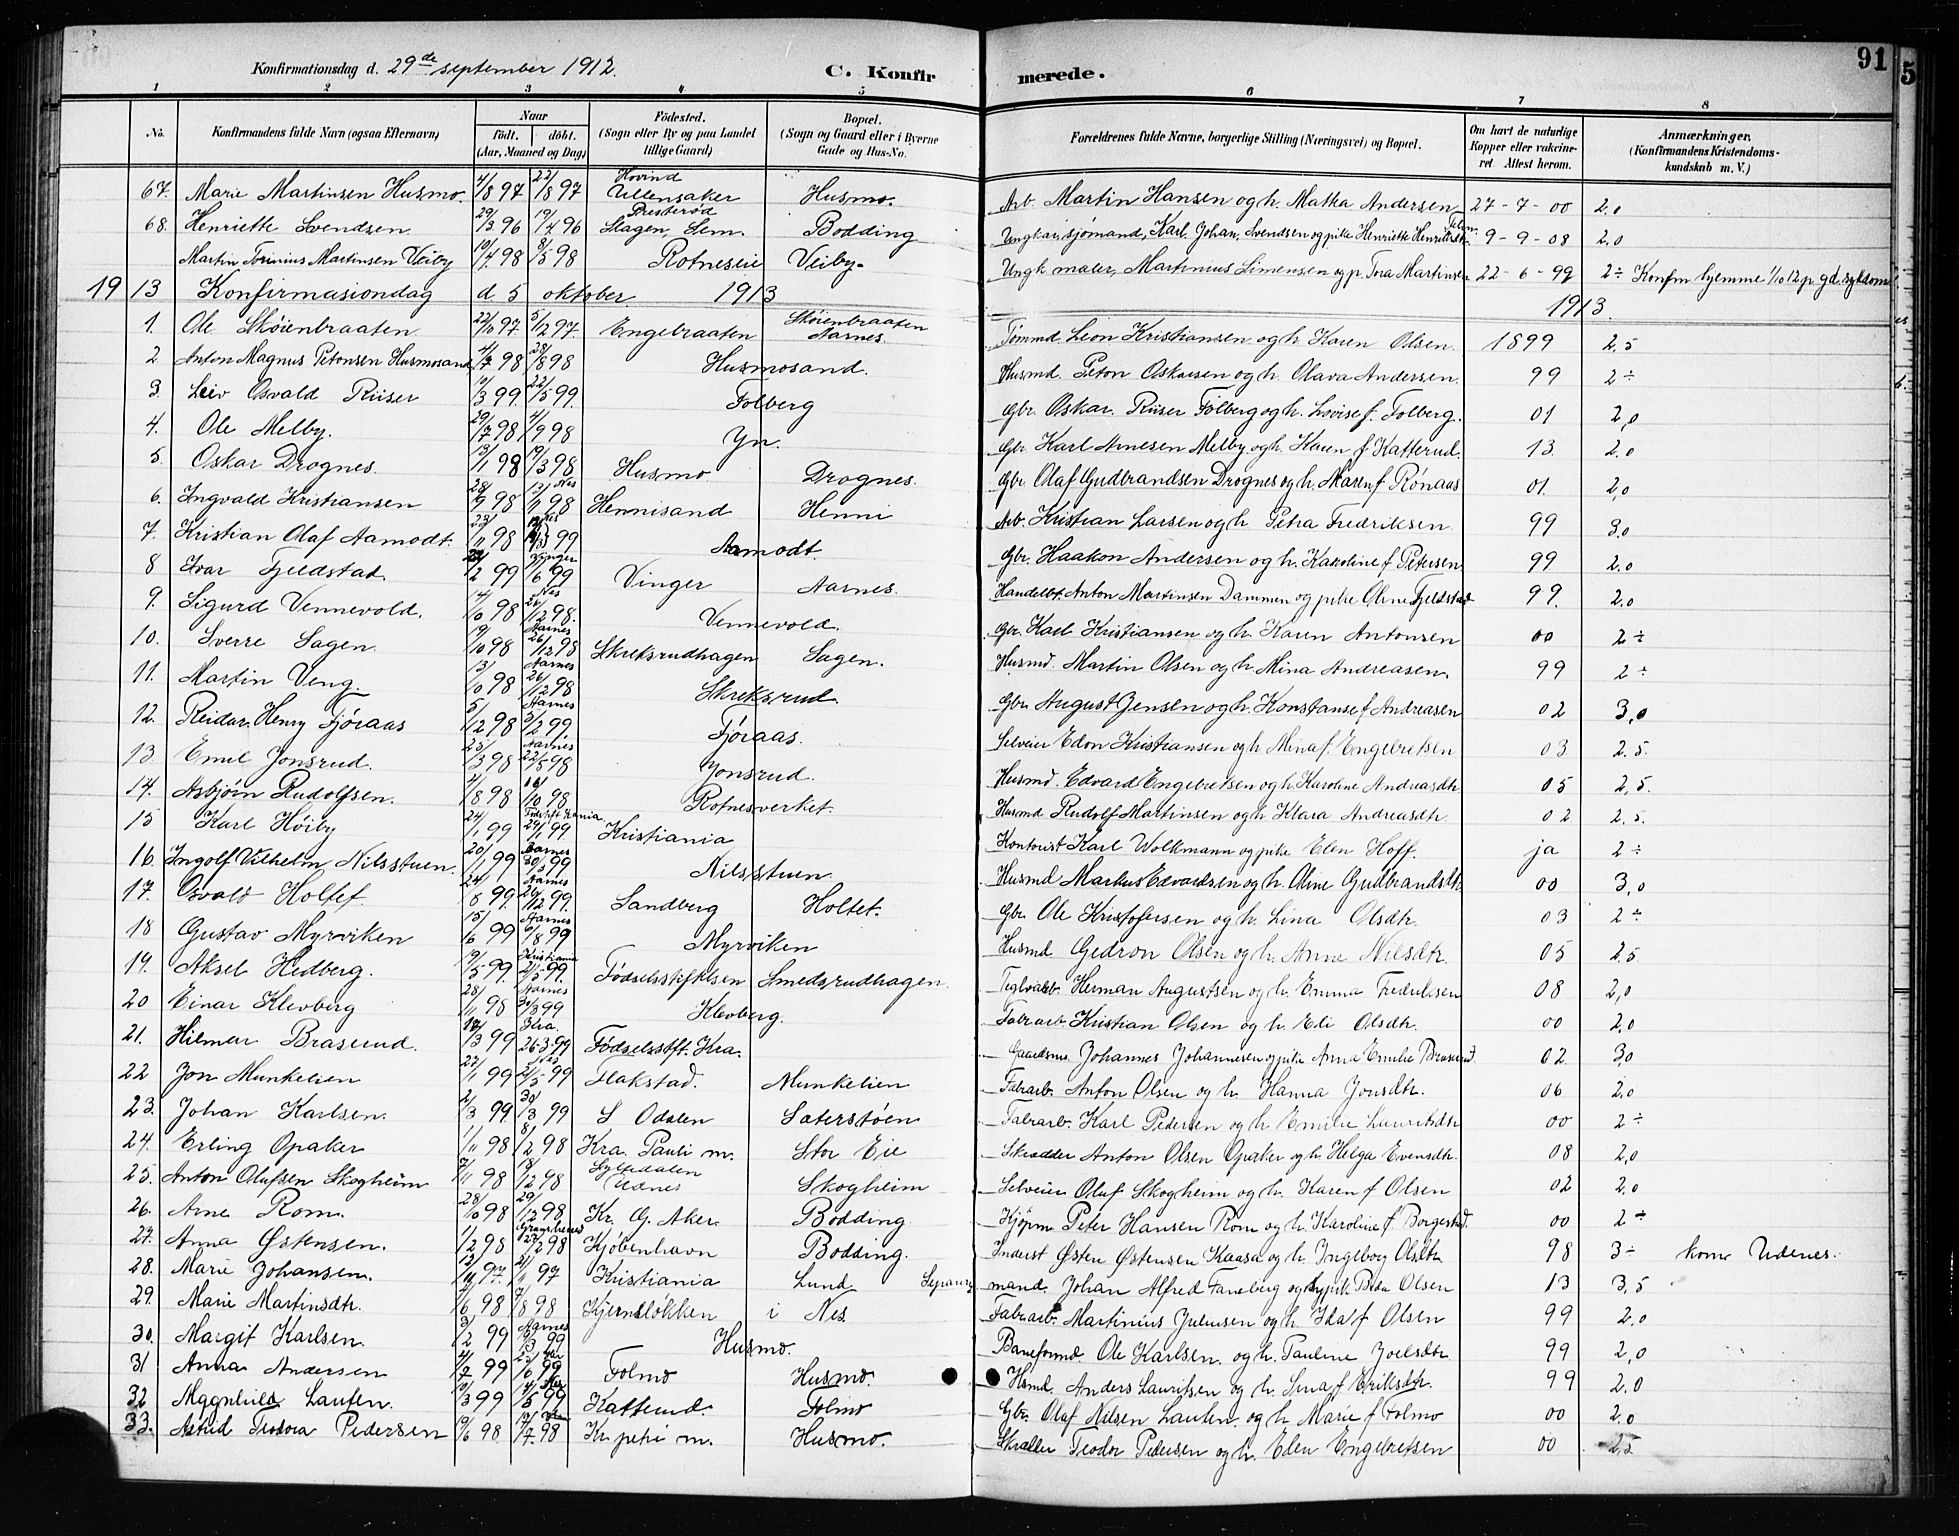 91
5
Konfirmationsdag d. 29de september 1912.
C. Konfirmerede.
1 2 3 4 5 6 7 8
No.
Konfirmandens fulde Navn (ogsaa Efternavn)
Naar
født. døbt.
(Aar, Maaned og Dag)
Fødested.
(Sogn eller By og paa Landet tillige Gaard)
Bopæl.
(Sogn og Gaard eller i Byerne Gade og Hus-No.
Forældrenes fulde Navne, borgerlige Stilling (Næringsvei) og Bopæl.
Om havt de naturlige Kopper eller vakcineret. Attest herom.
Anmærkninger.
(Konfirmandens Kristendomskundskab m. V.)
67. Marie Martinsen Husmo. 4/8 97 22/8 97 Hovind Ullensaker Husmo. Arb. Martin Hansen og h. Matha Andersen 27-7-00 2,0
68. Henriette Svendsen 29/3 96 19/4 96 Presterød Slagen, Sem. Bodding Ungkar, sjømand, Karl Johan Svendsen og pike Henriette 9-9-08 2,0
Martin Martinsen Veiby 10/4 98 8/5 98 Rotneseie Veiby Ungk. maler, Martinius Simensen og p. Tora Martinsen 22-6-99 2÷ Konfm hjemme 1/10 12 p. gd. sykdom
19 13 Konfirmasiondag d 5 oktober 1913 1913.
1. Ole Skøienbraaten 22/10 97. 5/12 97. Engebraaten Skøienbraaten Aarnes. Tømmd. Leon Kristiansen og h. Karen Olsen. 1899 2,5
2 Anton Magnus Petonsen Husmosand 4/7 98 28/8 98 Husmosand. Husmd. Peton Oskarsen og h. Olava Andersen. 99 2÷
3. Leiv Osvald Riiser 10/3 99. 22/5 99. Folberg Gbr. Oskar Riiser Folberg og h. Lovise f. Folberg. 01 2,0
4. Ole Melby. 29/7 98 4/9 98 Yn. Gbr Karl Arnesen Melby og h. Karen f. Katterud. 13. 2.0
5. Oskar Drognes. 13/1 98 19/3 98 Husmo Drognes. Gbr. Olaf Gudbrandsen Drognes og h. Maren f. Rønaas 01. 2,0
6. Ingvald Kristiansen 28/9 98 98 Hennisand Henni Arb. Kristian Larsen og h. Petra Fredriksen 99 3.0
7. Kristian Olaf Aamodt. 23/11 98 99 Aamodt. Gbr. Haakon Andersen og h. Karoline f. Petersen 99 2.0
8 Ivar Fjeldstad. 2 99 Vinger 6 99 Vinger Aarnes. Handelbt. Anton Martinsen Dammen og pike Oline Fjeldstad 99. 2,0
9. Sigurd Vennevold. 14/10 98 Nes 26/12 98. Vennevold. Gbr. Karl Kristiansen og h. Karen Antonsen 00 2÷
10. Sverre Sagen. 19/10 98 Aarnes 26/12 98 Skreksrudhagen Sagen. Husmd. Martin Olsen og h. Mina Andreasen. 99 2÷
11. Martin Veng 13/10 98 Aarnes 26/12 98 Skreksrud Gbr. August Jensen og h. Konstanse f. Andreasen 02 3,0
12. Reidar Henry Fjøraas 5/12 98 Aarnes 3/2 99, Fjøraas. Selveier Edon Kristiansen og h. Mina f. Engebretsen 03 2.5.
13. Emil Jonsrud. 23/3 98 Aarnes 22/5 98 Jonsrud. Husmd. Edvard Engebretsen og h. Karoline Andreasdtr 05 2,5.
14. Asbjørn Rudolfsen. 2/8 98 10 98 Rotnesverket. Husmd Rudolf Martinsen og h. Klara Andreasdtr. 02 2.5.
15 Karl Høiby 24/1 99 99 Kristiania Kontorist Karl Wolkmann og pike Elen Hoff. ja 2÷
16. Ingolf Vilhelm Nilsstuen. 20/1 99 Aarnes 30/3 99 Nilsstuen. Husmd Markus Edvardsen og h. Oline Gudbrandsdtr 00 3,0
17. Osvald Holtet. 24/8 99. Aarnes 26/12 99. Sandberg Holtet. Gbr. Ole Kristofersen og h. Lina Olsdtr. 03 2÷
18 Gustav Myrviken 15/6 99 Aarnes 6/8 99 Myrviken Husmd Gedron Olsen og h. Anne Nilsdtr. 05 2,5
19. Aksel Hedberg. 19/5 99. Kristiania 5 99. Fødselsstiftelsen Smedsrudhagen Herman Augustsen og h. Emma Fredriksen 08 2,0
20 Einar Klevberg 28/11 98 Aarnes 3 99 Klevberg. Fabrarb. Kristian Olsen og h. Eli Olsdtr. 00 2.0
21. Hilmar Braserud. 3 99 Kra. 26.3.99 Fødselsstft. Kra. Gaardsm. Johannes Johannesen og pike Anna Emilie Braserud. 02 3,0
22 Jon Munkelien 22/1 99 Nes 2/5 99 Flakstad. Munkelien Fabrarb. Anton Olsen og h. Hanna Jonsdtr. 06 2,0
23. Johan Karlsen. 2/3 99. 30/3 99 S Odalen Saterstøen Fabrarb. Karl Pedersen og h Emilie Lauritsdtr 00 2÷
24. Erling Opaker 1/11 98 8/12 98 Kra. Pauli m. Stor Eie Skrædder Anton Olsen Opaker og h. Helga Evensdtr. 08 2,0
25. Anton Olafsen Skogheim 7/11 98 18/12 98 Udnes Skogheim Selveier Olaf Skogheim og h. Karen f Olsen 02 2,0
26. Arne Rom. 28/10 98 29/12 98 Kr. G. Aker. Bodding. Kjøpm Peter Hansen Rom og h. Karoline f. Borgestad. 00 2÷
27. Anna Østensen. 1/2 98 2 98 Kjøbenhavn Bodding. Inderst Østen Østensen Kaasa og h. Ingeborg Olsdtr 98 3÷ kom Udenes.
28. Marie Johansen. 97. 97 Kristiania Lund mand. Johan Alfred Faneberg og pike Beda Olsen 13 3,5
29. Marie Martinsdtr. 7/6 98 7/8 98 Kjernsløkken i Nes Fabrarb. Martinius Juliusen og h. Ida f Olsen 99 2,0
30. Margit Karlsen. 3/2 99 Aarnes 3 99 Husmo. Baneformd. Ole Karlsen. og h. Pauline Joelsdtr. 99 2,0
31 Anna Andersen 4/2 99 6 99 Folmo Husmo. Husmd. Anders Lauritsen og h. Lina f Eriksdtr. 99 2,0
32 Magnhild Lauten. 10/3 99 5 99 Katterud. Folmo Gbr. Olaf Nilsen Lauten og h Marie f Folmo 00 2,0
33. Astrid Teodora Pedersen 19/6 98 7 98 Kr. petri m. Husmo. Skrædder Teodor Pedersen og h. Elen Engebretsen 00 2,5